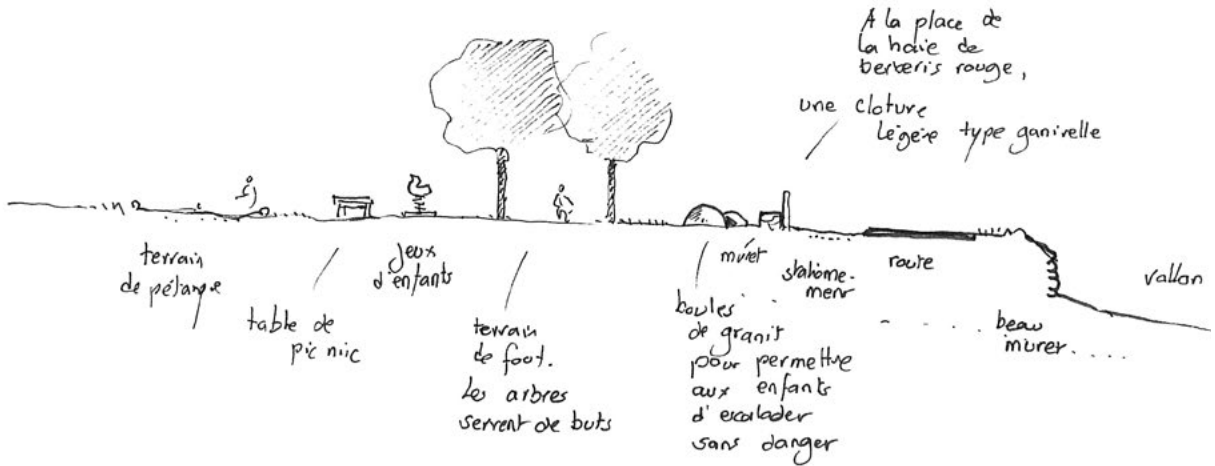 A la place de
la haie de
berberis rouge,
une cloture
légère type ganivelle
terrain
de pétanque
table de
pic nic
jeux
d'enfants
terrain
de foot.
Les arbres
servent de buts
boules
de granit
pour permettre
aux enfants
d'escalader
sans danger
muret
stationne-
ment
route
beau
muret.....
vallon